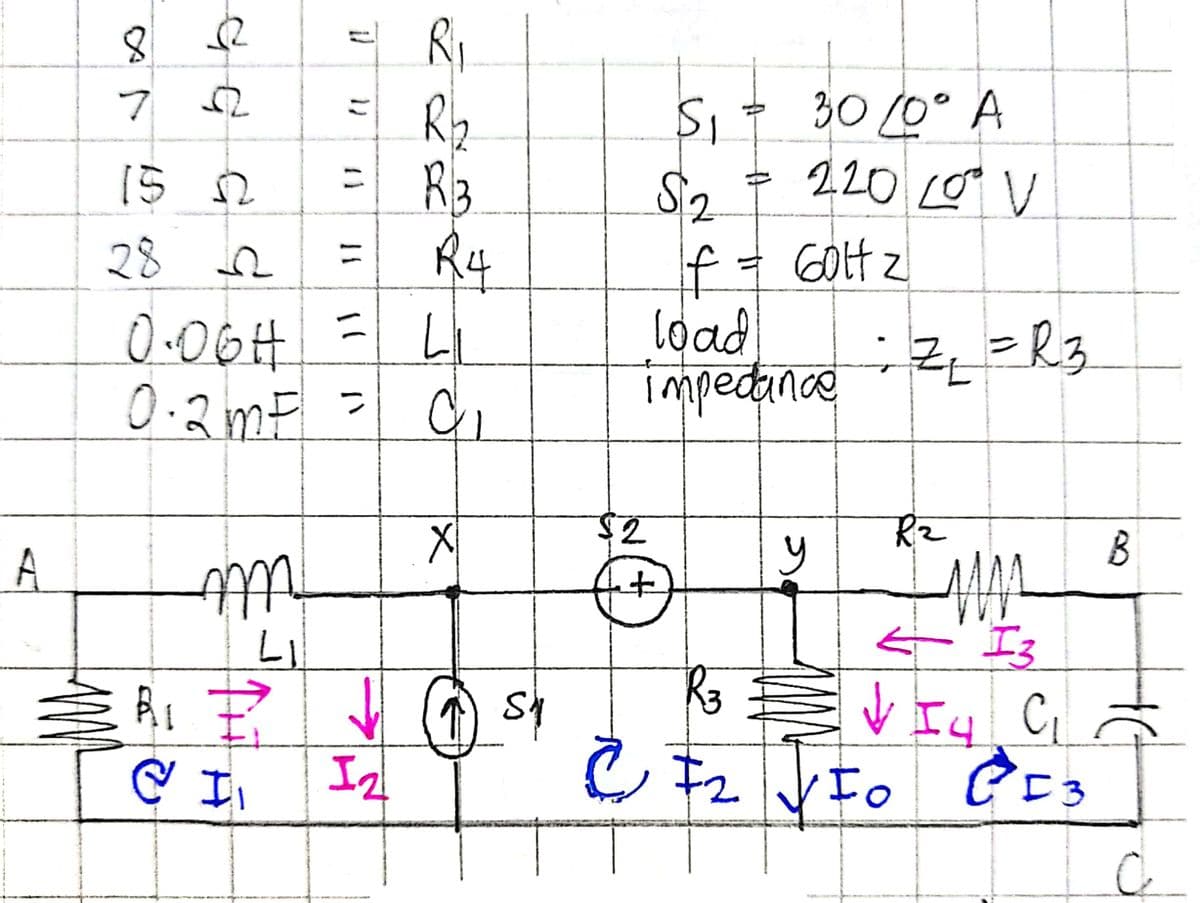 8 Ω = R1
7 Ω = R2
15 Ω = R3
28 Ω = R4
0.06H = L1
0.2mF = C1
S1 = 30∠0° A
S2 = 220∠0° V
f = 60Hz
load impedance ; ZL = R3
A
X
S2
+
y
R2
B
L1
I3
R1
I1
S1
R3
I4
C1
I1
I2
I2
I0
I3
C